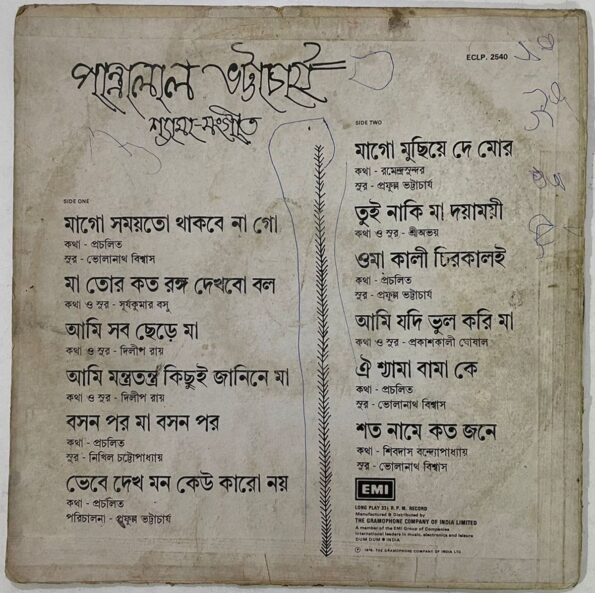 ECLP. 2540
পান্নালাল ভট্টাচার্য
শ্যামা-সংগীত
SIDE ONE
মাগো সময়তো থাকবে না গো
কথা - প্রচলিত
সুর - ভোলানাথ বিশ্বাস
মা তোর কত রঙ্গ দেখবো বল
কথা ও সুর - সূর্যকুমার বসু
আমি সব ছেড়ে মা
কথা ও সুর - দিলীপ রায়
আমি মন্ত্রতন্ত্র কিছুই জানিনে মা
কথা ও সুর - দিলীপ রায়
বসন পর মা বসন পর
কথা - প্রচলিত
সুর - নিখিল চট্টোপাধ্যায়
ভেবে দেখ মন কেউ কারো নয়
কথা - প্রচলিত
পরিচালনা - প্রফুল্ল ভট্টাচার্য
SIDE TWO
মাগো মুছিয়ে দে মোর
কথা - রমেন্দ্রসুন্দর
সুর - প্রফুল্ল ভট্টাচার্য
তুই নাকি মা দয়াময়ী
কথা ও সুর - শ্রীঅভয়
ওমা কালী চিরকালই
কথা - প্রচলিত
সুর - প্রফুল্ল ভট্টাচার্য
আমি যদি ভুল করি মা
কথা ও সুর - প্রকাশকালী ঘোষাল
ঐ শ্যামা বামা কে
কথা - প্রচলিত
সুর - ভোলানাথ বিশ্বাস
শত নামে কত জনে
কথা - শিবদাস বন্দ্যোপাধ্যায়
সুর - ভোলানাথ বিশ্বাস
EMI
LONG PLAY 33⅓ R.P.M. RECORD
Manufactured & Distributed by
THE GRAMOPHONE COMPANY OF INDIA LIMITED
A member of the EMI Group of Companies
International leaders in music, electronics and leisure
DUM DUM INDIA
Ⓟ 1976 THE GRAMOPHONE COMPANY OF INDIA LTD